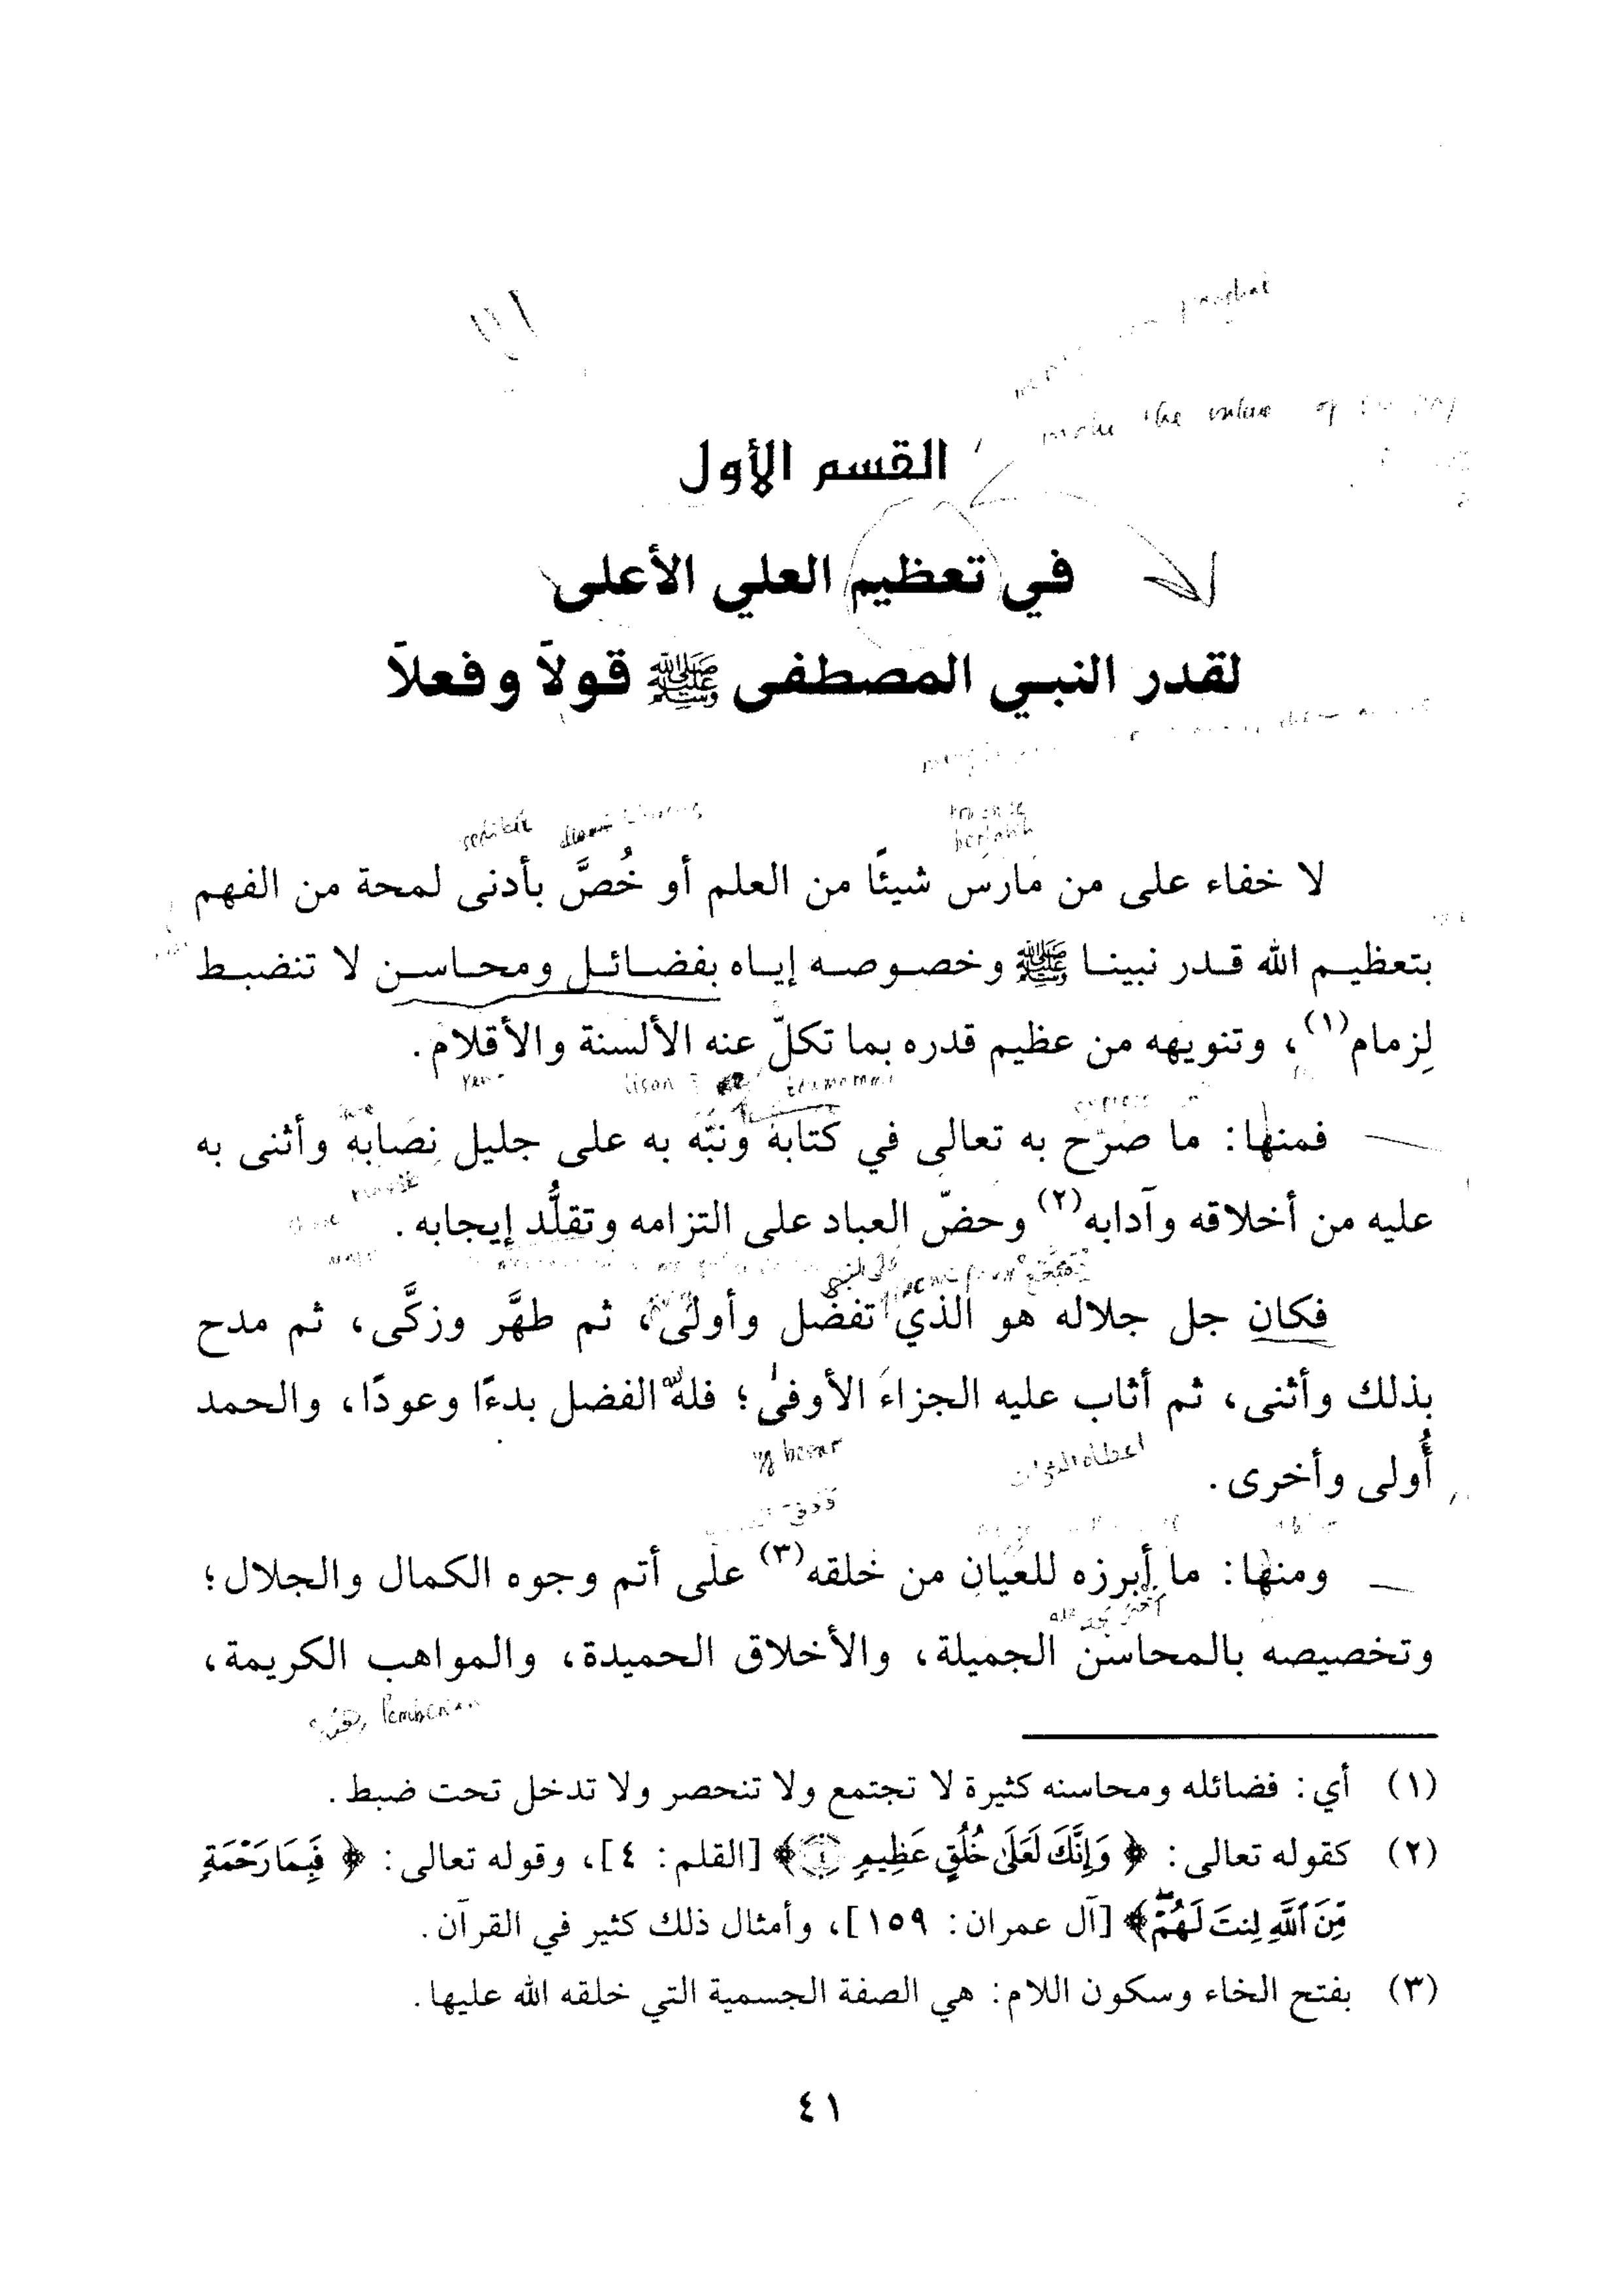 pinghat
make the value of
القسم الأول
في تعظيم العلي الأعلى
لقدر النبي المصطفى ﷺ قولاً وفعلاً
sedikit
لا خفاء على من مارَس شيئًا من العلم أو خُصَّ بأدنى لمحة من الفهم
بتعظيم الله قدر نبينا ﷺ وخصوصه إياه بفضائل ومحاسن لا تنضبط
لِزمام(١)، وتنويهه من عظيم قدره بما تكلّ عنه الألسنة والأقلام.
lisan
فمنها: ما صرّح به تعالى في كتابه ونبّه به على جليل نصابه وأثنى به
عليه من أخلاقه وآدابه(٢) وحضّ العباد على التزامه وتقلُّد إيجابه.
فكان جل جلاله هو الذي تفضّل وأولى، ثم طهَّر وزكَّى، ثم مدح
بذلك وأثنى، ثم أثاب عليه الجزاءَ الأوفى؛ فله الفضل بدءًا وعودًا، والحمد
yg besar
أُولى وأخرى.
ومنها: ما أبرزه للعيان من خلقه(٣) على أتم وجوه الكمال والجلال؛
وتخصيصه بالمحاسن الجميلة، والأخلاق الحميدة، والمواهب الكريمة،
Pemberian
(١) أي: فضائله ومحاسنه كثيرة لا تجتمع ولا تنحصر ولا تدخل تحت ضبط.
(٢) كقوله تعالى: ﴿وَإِنَّكَ لَعَلَىٰ خُلُقٍ عَظِيمٍ ٤﴾ [القلم: ٤]، وقوله تعالى: ﴿فَبِمَا رَحْمَةٍ
مِّنَ ٱللَّهِ لِنتَ لَهُمْ﴾ [آل عمران: ١٥٩]، وأمثال ذلك كثير في القرآن.
(٣) بفتح الخاء وسكون اللام: هي الصفة الجسمية التي خلقه الله عليها.
٤١